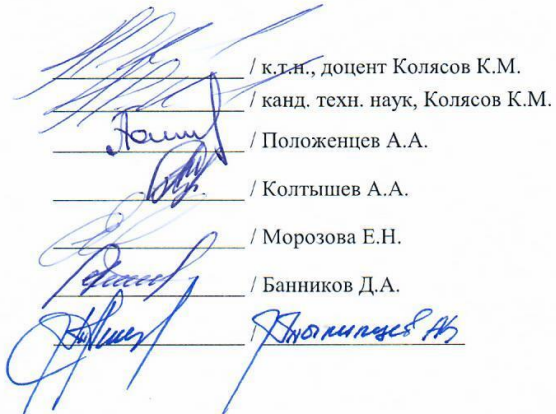 / к.т.н., доцент Колясов К.М.
/ канд. техн. наук, Колясов К.М.
/ Положенцев А.А.
/ Колтышев А.А.
/ Морозова Е.Н.
/ Банников Д.А.
/